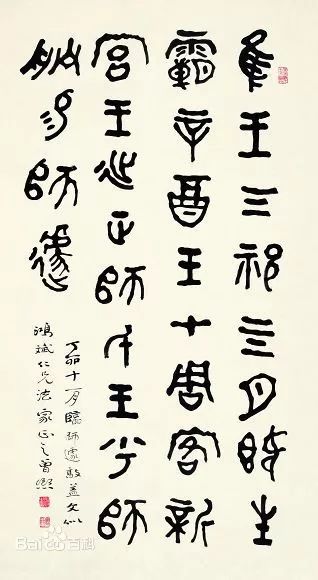 隹王三祀亖月既生
霸辛酉王才周客新
宮王延正師氏王乎師
朕易師遽
丁卯十一月臨師遽敦蓋文似
鴻斌仁兄法家正之曾熙
Bai百科